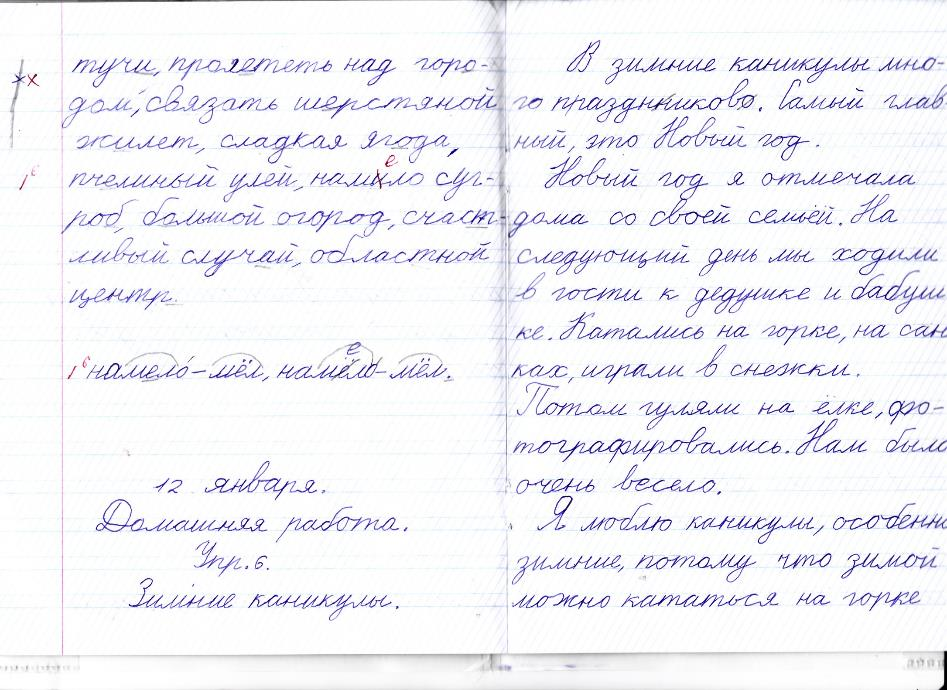 тучи, пролететь над горо-
дом, связать шерстяной
жилет, сладкая ягода,
е
1б
пчелиный улей, намило суг-
роб, большой огород, счаст-
ливый случай, областной
центр.
е
1б намело́ – мёл, намёло – мёл.
12 января.
Домашняя работа.
Упр. 6.
Зимние каникулы.
В зимние каникулы мно-
го праздников. Самый глав
ный, это Новый год.
Новый год я отмечала
дома со своей семьёй. На
следующий день мы ходили
в гости к дедушке и бабуш
ке. Катались на горке, на сан
ках, играли в снежки.
Потом гуляли на ёлке, фо-
тографировались. Нам было
очень весело.
Я люблю каникулы, особенн
зимние, потому что зимой
можно кататься на горке